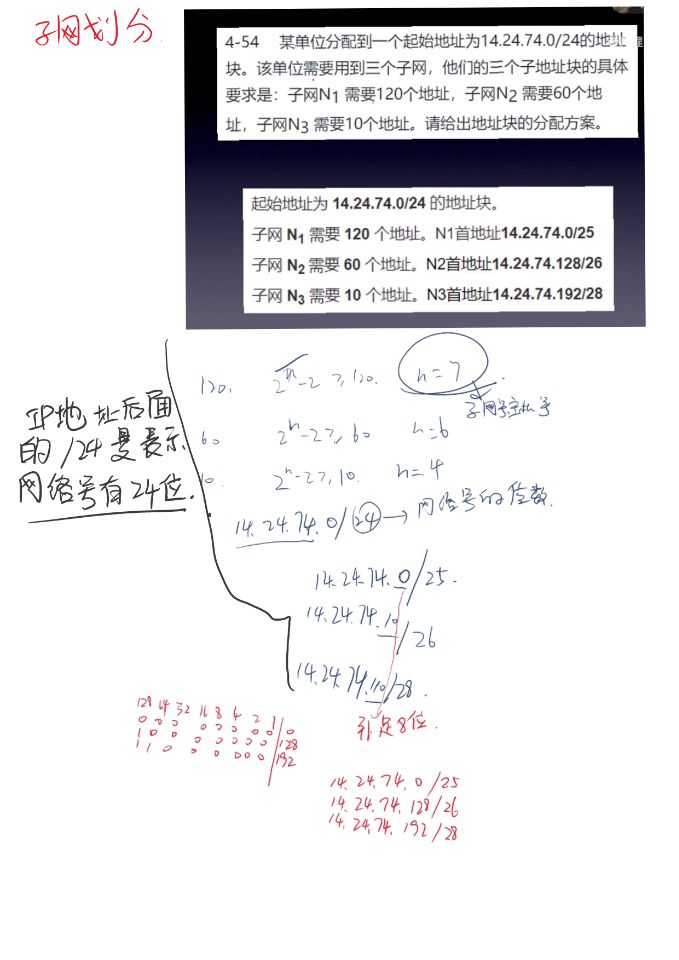 子网划分
4-54 某单位分配到一个起始地址为14.24.74.0/24的地址
块。该单位需要用到三个子网，他们的三个子地址块的具体
要求是：子网N1 需要120个地址，子网N2 需要60个地
址，子网N3 需要10个地址。请给出地址块的分配方案。
起始地址为 14.24.74.0/24 的地址块。
子网 N1 需要 120 个地址。N1首地址14.24.74.0/25
子网 N2 需要 60 个地址。N2首地址14.24.74.128/26
子网 N3 需要 10 个地址。N3首地址14.24.74.192/28
120. 2ⁿ-2≥120. n=7
子网号主机号
60 2ⁿ-2≥60 n=6
10. 2ⁿ-2≥10. n=4
IP地址后面
的/24是表示
网络号有24位.
14.24.74.0/24→网络号的位数.
14.24.74.0/25.
14.24.74.10/26
14.24.74.110/28.
补足8位.
128 64 32 16 8 4 2 1
0 0 0 0 0 0 0 0/0
1 0 0 0 0 0 0 0/128
1 1 0 0 0 0 0 0/192
14.24.74.0/25
14.24.74.128/26
14.24.74.192/28